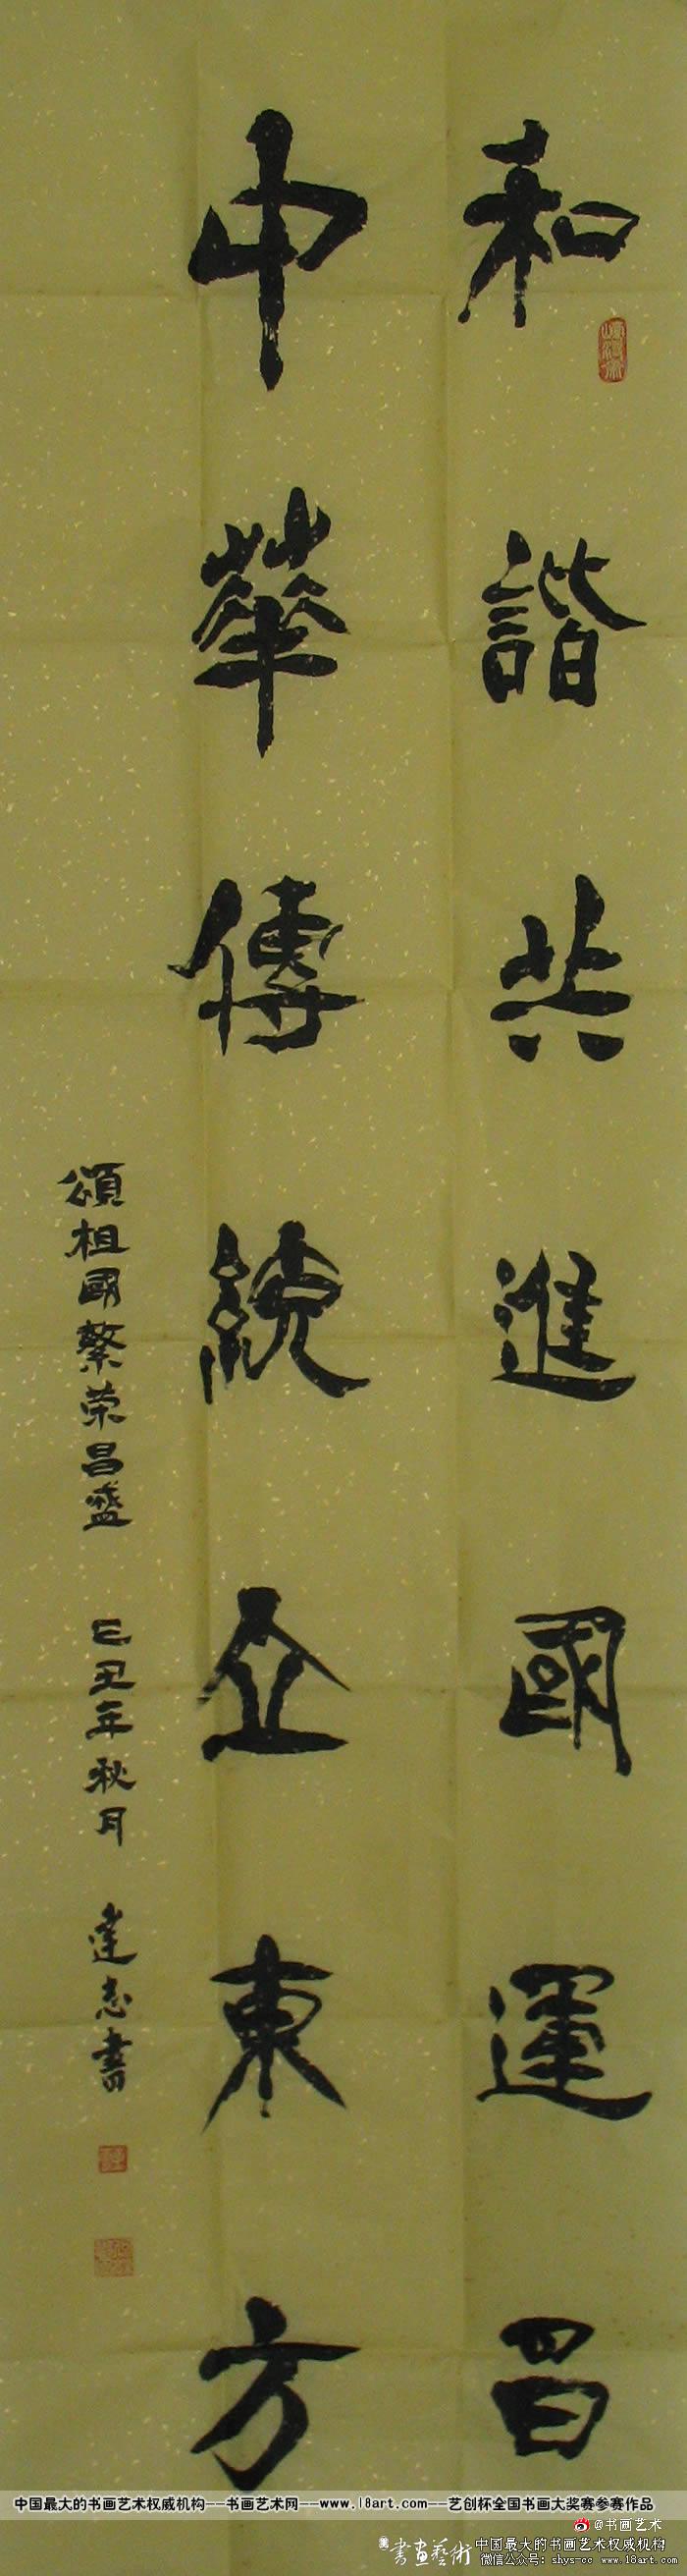 和諧共進國運昌
中華傳統立東方
頌祖國繁荣昌盛 己丑年秋月 達志書
中国最大的书画艺术权威机构--书画艺术网--www.18art.com--艺创杯全国书画大奖赛参赛作品
@书画艺术
書画藝術 中国最大的书画艺术权威机构
微信公众号：shys-cc www.18art.com